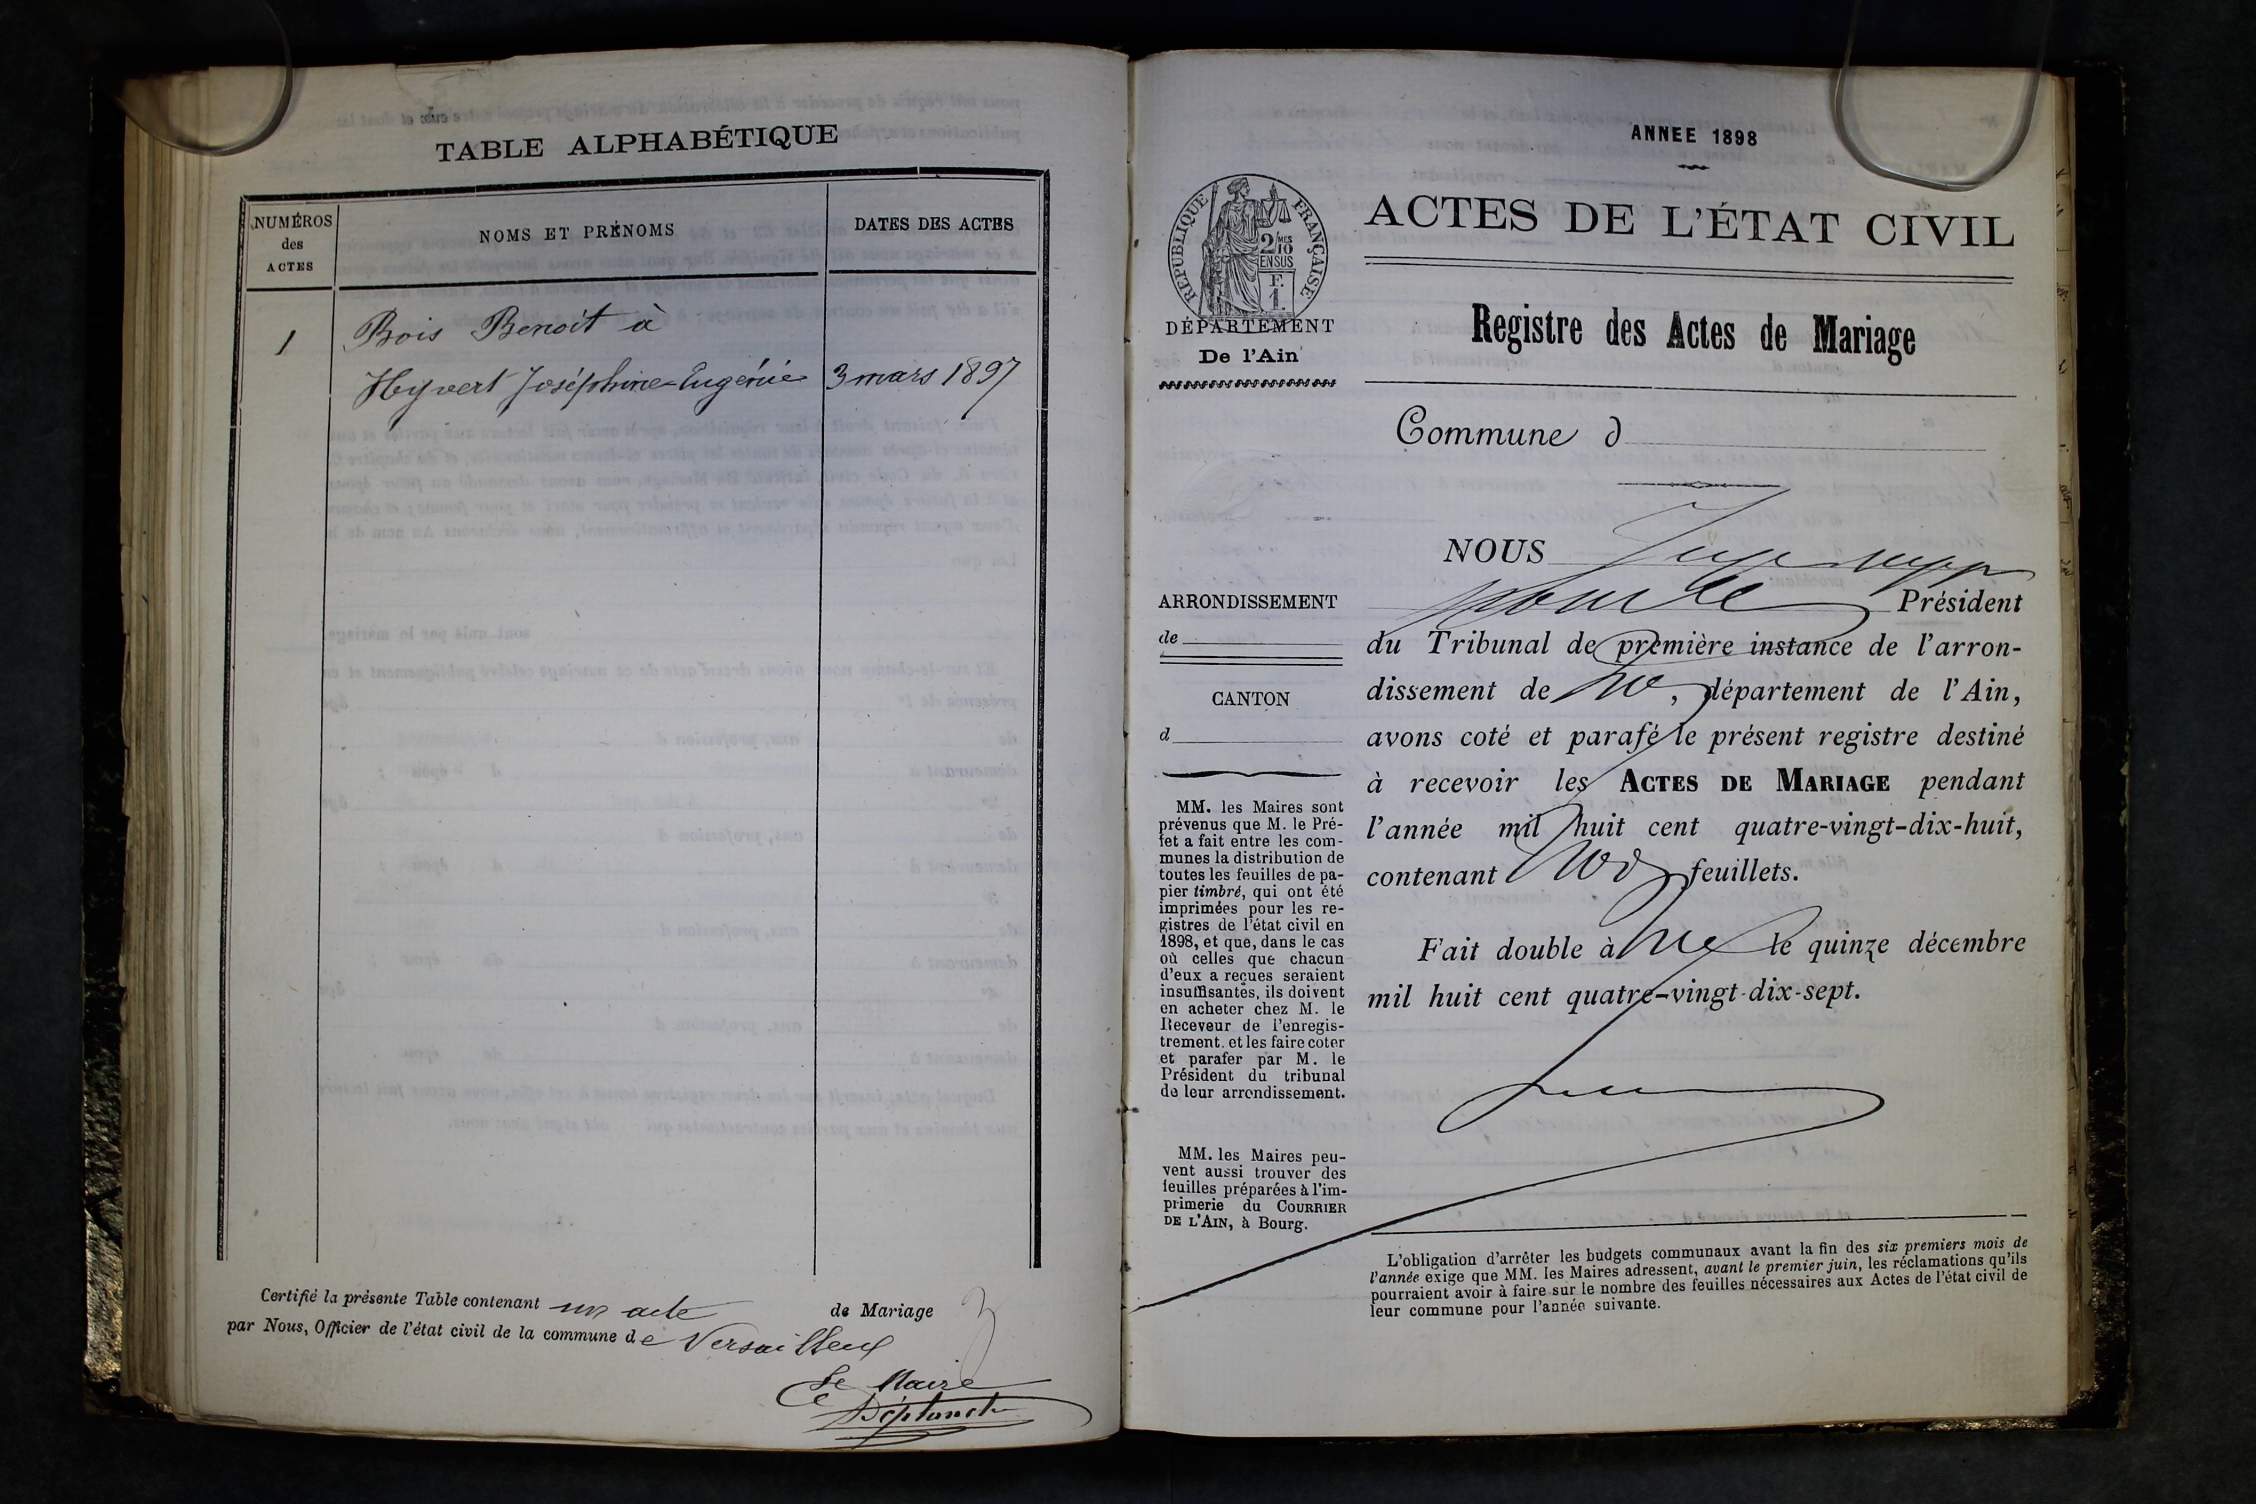 TABLE ALPHABÉTIQUE
NUMÉROS
des
ACTES
NOMS ET PRÉNOMS
DATES DES ACTES
1
Bois Benoit à
Hyvert Joséphine-Eugénie
3 mars 1897
Certifié la présente Table contenant un acte de Mariage
par Nous, Officier de l'état civil de la commune de Versailleux
Le Maire
ANNEE 1898
RÉPUBLIQUE FRANÇAISE
2/10MES
EN SUS
F.
1.
DÉPARTEMENT
De l'Ain
ARRONDISSEMENT
de
CANTON
d
MM. les Maires sont
prévenus que M. le Pré-
fet a fait entre les com-
munes la distribution de
toutes les feuilles de pa-
pier timbré, qui ont été
imprimées pour les re-
gistres de l'état civil en
1898, et que, dans le cas
où celles que chacun
d'eux a reçues seraient
insuffisantes, ils doivent
en acheter chez M. le
Receveur de l'enregis-
trement. et les faire coter
et parafer par M. le
Président du tribunal
de leur arrondissement.
MM. les Maires peu-
vent aussi trouver des
feuilles préparées à l'im-
primerie du COURRIER
DE L'AIN, à Bourg.
ACTES DE L'ÉTAT CIVIL
Registre des Actes de Mariage
Commune d
NOUS
Président
du Tribunal de première instance de l'arron-
dissement de , département de l'Ain,
avons coté et parafé le présent registre destiné
à recevoir les ACTES DE MARIAGE pendant
l'année mil huit cent quatre-vingt-dix-huit,
contenant feuillets.
Fait double à le quinze décembre
mil huit cent quatre-vingt-dix-sept.
L'obligation d'arrêter les budgets communaux avant la fin des six premiers mois de
l'année exige que MM. les Maires adressent, avant le premier juin, les réclamations qu'ils
pourraient avoir à faire sur le nombre des feuilles nécessaires aux Actes de l'état civil de
leur commune pour l'année suivante.